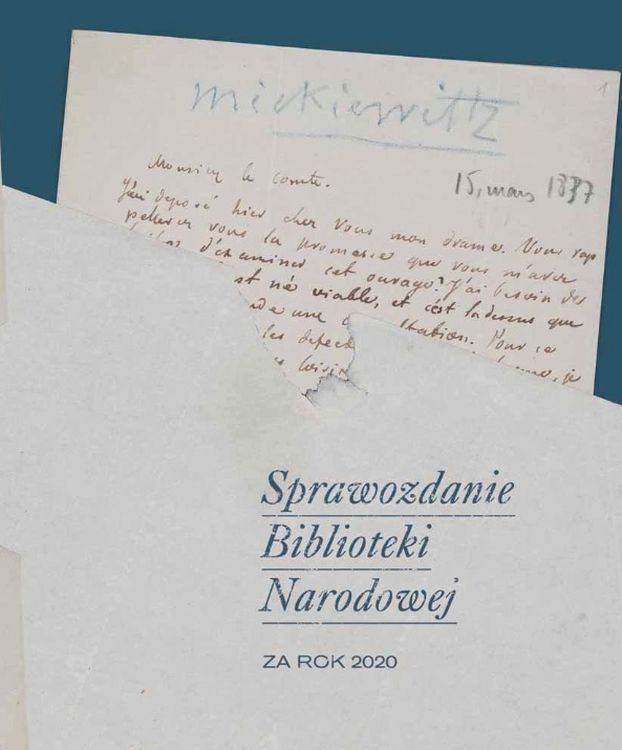 1
mickiewittz
Monsieur le comte.
15, mars 1837
J'ai deposé hier chez vous mon drame. Vous rap
pellerez vous la promesse que vous m'avez
d'examiner cet ouvrage? J'ai besoin de
est né viable, et c'est la dessus que
une ltation. Pour ce
les defect je
Sprawozdanie
Biblioteki
Narodowej
ZA ROK 2020